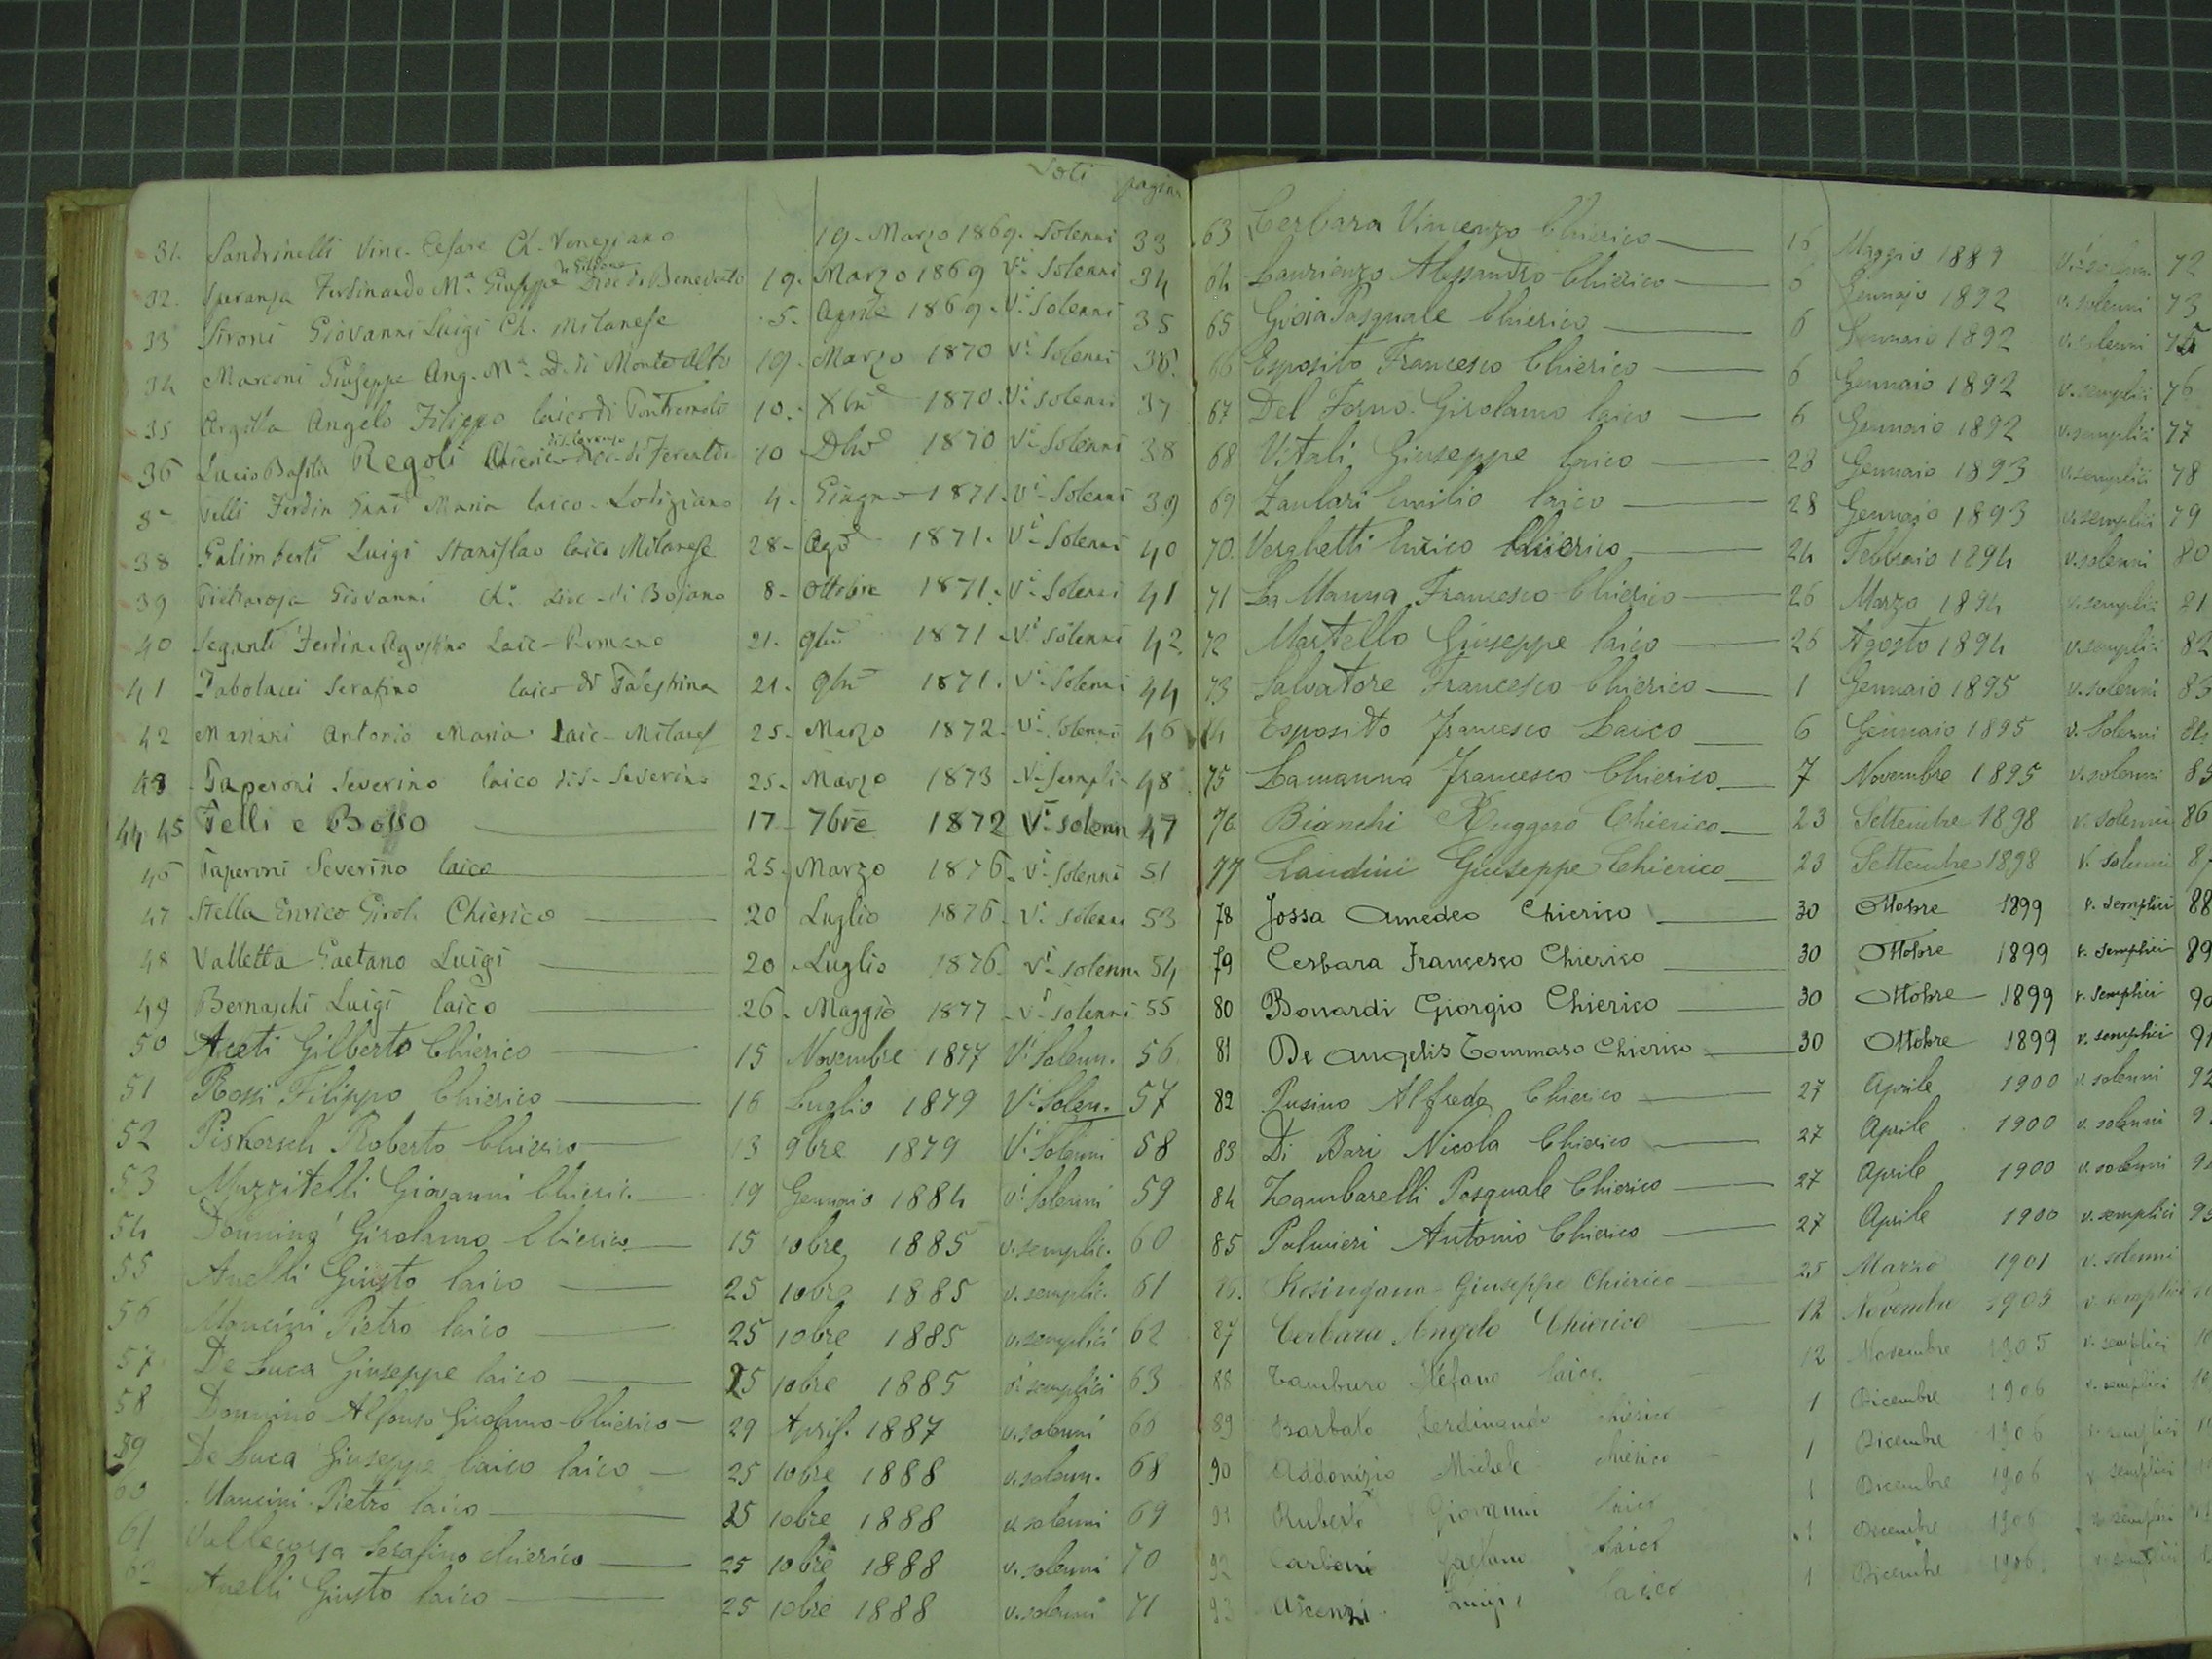 Voti pagina
31. Sandrinelli Vinc. Cesare Ch. Veneziano 19. Marzo 1869. Solenni 33
32. Speranza Ferdinando Mª. Giuseppe Dioc. di Benevento 19. Marzo 1869 Vi Solenni 34
33 Sironi Giovanni Luigi Ch. Milanese 5. Aprile 1869. Vi Solenni 35
34 Marconi Giuseppe Ang. Mª. D. di Montealto 19. Marzo 1870 Vi Solenni 36.
35 Argilla Angelo Filippo laico di Pontremoli 10. Xbre 1870. Vi solenni 37
36 Lucio Regoli Chierico 10 Dbre 1870 Vi Solenni 38
Ferdin Maria laico Lodigiano 4. Giugno 1871. Vi Solenni 39
38 Galimberti Luigi Stanislao laico Milanese 28 Ago 1871. Vi Solenni 40
39 Pietrarosa Giovanni Ch. Dioc. di Bojano 8. Ottobre 1871. Vi Solenni 41
40 Seganti Ferdin. Agostino Laic. Romano 21. 9bre 1871. Vi Solenni 42
41 Tabolacci Serafino laico di Palestrina 21. 9bre 1871. Vi Solenni 44
42 Antonio Maria Laic. Milanes 25. Marzo 1872. Vi Solenni 46
43 Taperoni Severino laico di S. Severino 25. Marzo 1873 Vi Sempli 48
44. 45 Telli e Bosso 17 7bre 1872 Vi Solenn 47
46 Taperoni Severino laico 25. Marzo 1876. Vi Solenni 51
47 Stella Enrico Girol. Chierico 20 Luglio 1876. Vi Solenni 53
48 Valletta Gaetano Luigi 20 Luglio 1876. Vi Solenn. 54
49 Bernaschi Luigi laico 26. Maggio 1877 Vi Solenni 55
50 Aceti Gilberto Chierico 15 Novembre 1877 Vi Solenn. 56
51 Rossi Filippo Chierico 16 Luglio 1879 Vi Solen. 57
52 Piskorsch Roberto Chierico 13 9bre 1879 Vi Solenni 58
53 Muzzitelli Giovanni Chieric. 19 Gennaio 1884 Vi Solenni 59
54 Donnino Girolamo Chierico 15 10bre 1885 v. semplic. 60
55 Anelli Giusto laico 25 10bre 1885 v. semplic. 61
56 Mancini Pietro laico 25 10bre 1885 v. semplici 62
57 De Luca Giuseppe laico 25 10bre 1885 v. semplici 63
58 Donnino Alfonso Girolamo Chierico 29 April. 1887 v. solenni 66
59 De Luca Giuseppe laico laico 25 10bre 1888 v. solenn. 68
60 Mancini Pietro laico 25 10bre 1888 v. solenni 69
61 Vallecorsa Serafino chierico 25 10bre 1888 v. solenni 70
62 Anelli Giusto laico 25 10bre 1888 v. solenni 71
63 Cerbara Vincenzo Chierico 16 Maggio 1889 Vi solenn. 72
64 Laurienzo Alessandro Chierico 6 Gennajo 1892 v. solenni 73
65 Gioia Pasquale Chierico 6 Gennaio 1892 v. solenni 75
66 Esposito Francesco Chierico 6 Gennaio 1892 v. semplici 76
67 Del Forno Girolamo laico 6 Gennaio 1892 v. semplici 77
68 Vitali Giuseppe laico 28 Gennaio 1893 v. semplici 78
69 Zanlari Emilio laico 28 Gennajo 1893 v. semplici 79
70. Verghetti Enrico Chierico 24 Febbraio 1894 v. solenni 80
71 La Manna Francesco Chierico 26 Marzo 1894 v. semplici 81
72 Martello Giuseppe laico 26 Agosto 1894 v. semplici 82
73 Salvatore Francesco Chierico 1 Gennaio 1895 v. solenni 83
74 Esposito Francesco Laico 6 Gennaio 1895 v. Solenni 84
75 Lamanna Francesco Chierico 7 Novembre 1895 v. solenni 85
76 Bianchi Ruggero Chierico 23 Settembre 1898 v. Solenni 86
77 Landini Giuseppe Chierico 23 Settembre 1898 v. solenni 87
78 Jossa Amedeo Chierico 30 Ottobre 1899 v. semplici 88
79 Cerbara Francesco Chierico 30 Ottobre 1899 v. semplici 89
80 Bonardi Giorgio Chierico 30 Ottobre 1899 v. semplici 90
81 De Angelis Tommaso Chierico 30 Ottobre 1899 v. semplici 91
82 Pusino Alfredo Chierico 27 Aprile 1900 v. solenni 92
83 Di Bari Nicola Chierico 27 Aprile 1900 v. solenni 9
84 Zambarelli Pasquale Chierico 27 Aprile 1900 v. solenni 9
85 Palmieri Antonio Chierico 27 Aprile 1900 v. semplici 95
86. Rosingana Giuseppe Chierico 25 Marzo 1901 v. solenni
87 Cerbara Angelo Chierico 12 Novembre 1905 v. semplici
88 Tamburo Stefano laico 12 Novembre 1905 v. semplici
89 Barbato Ferdinando chierico 1 Dicembre 1906 v. semplici
90 Addonizio Michele chierico 1 Dicembre 1906 v. semplici
91 Ruberti Giovanni laico 1 Dicembre 1906 v. semplici
92 Carboni Gaetano laico 1 Dicembre 1906 v. semplici
93 Ascenzi Luigi laico 1 Dicembre 1906 v. semplici